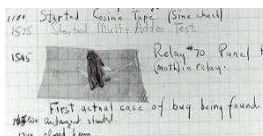 1100 Started Cosine Tape (Sine check)
1525 Started Multy Adder Test.
1545 Relay #70 Panel
(moth) in relay.
First actual case of bug being found.
antangent started.
closed down.